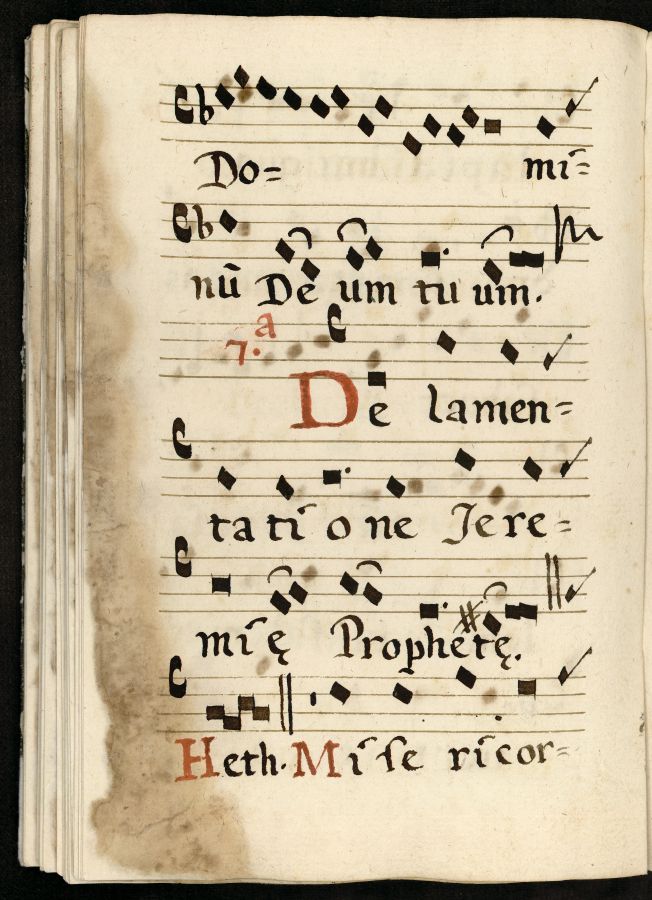 Do= mi=
nū De um tu um.
7.a
De lamen=
ta ti o ne Jere=
mi ę Prophetę.
Heth. Mi ſe ricor=